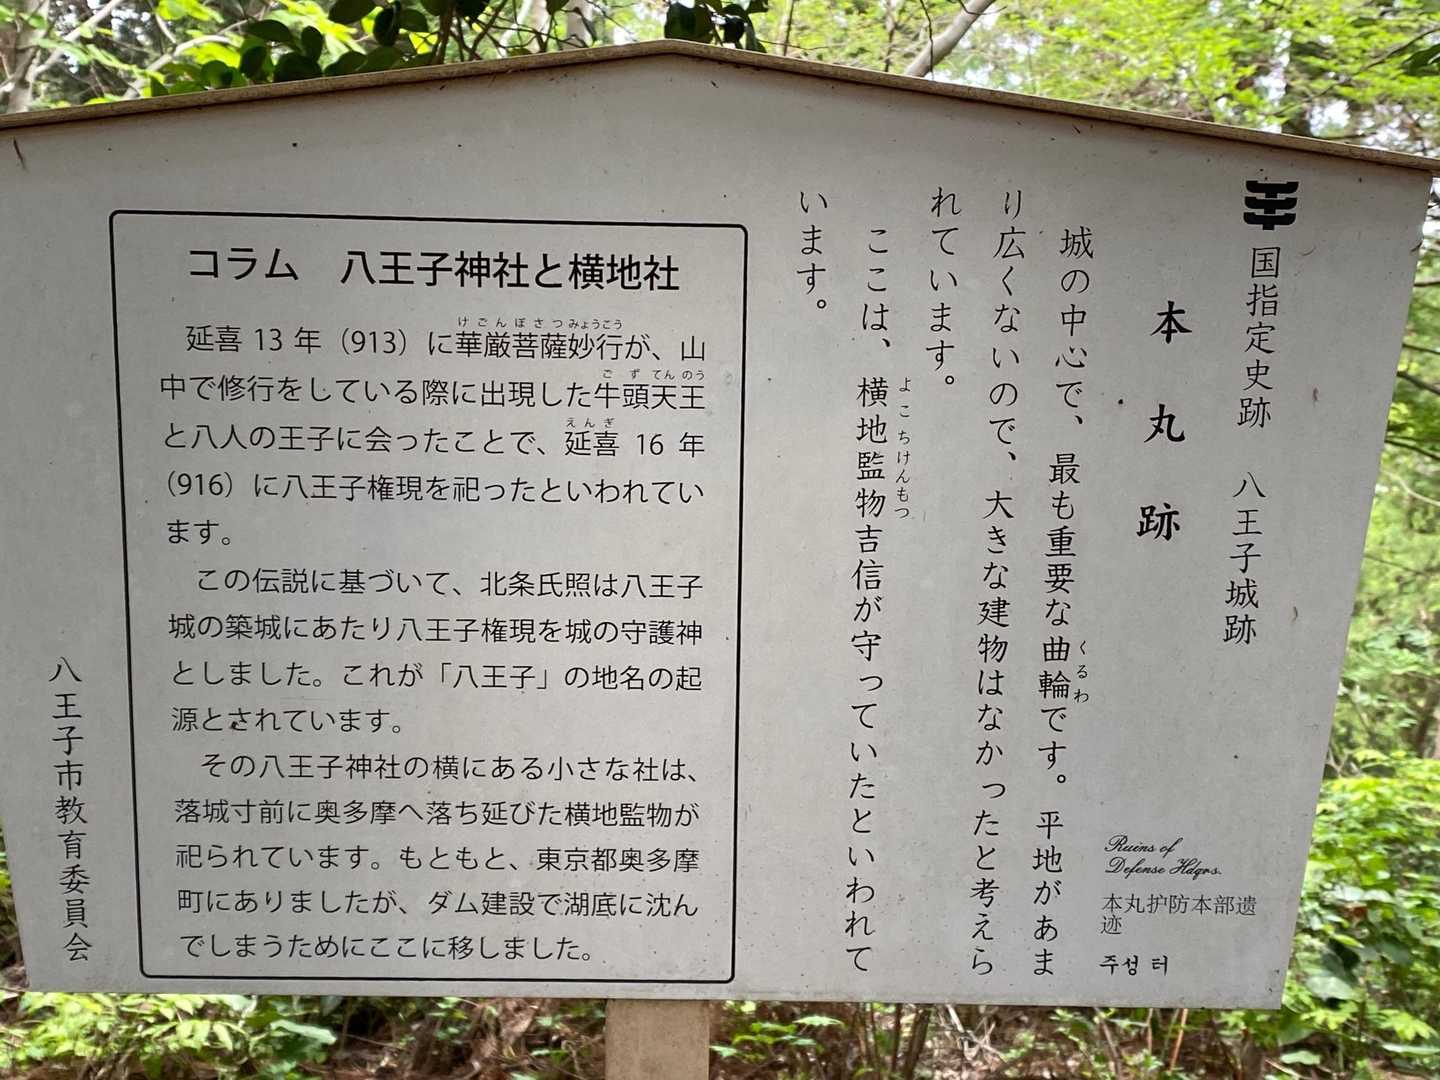 国指定史跡 八王子城跡
本丸跡
城の中心で、最も重要な曲輪です。平地があま
くるわ
り広くないので、大きな建物はなかったと考えら
れています。
ここは、横地監物吉信が守っていたといわれて
よこちけんもつ
います。
Ruins of
Defense Hdqrs.
本丸护防本部遗
迹
주성 터
コラム 八王子神社と横地社
けごんぼさつみょうこう
延喜 13 年（913）に華厳菩薩妙行が、山
ごずてんのう
中で修行をしている際に出現した牛頭天王
えんぎ
と八人の王子に会ったことで、延喜 16 年
（916）に八王子権現を祀ったといわれてい
ます。
この伝説に基づいて、北条氏照は八王子
城の築城にあたり八王子権現を城の守護神
としました。これが「八王子」の地名の起
源とされています。
その八王子神社の横にある小さな社は、
落城寸前に奥多摩へ落ち延びた横地監物が
祀られています。もともと、東京都奥多摩
町にありましたが、ダム建設で湖底に沈ん
でしまうためにここに移しました。
八王子市教育委員会